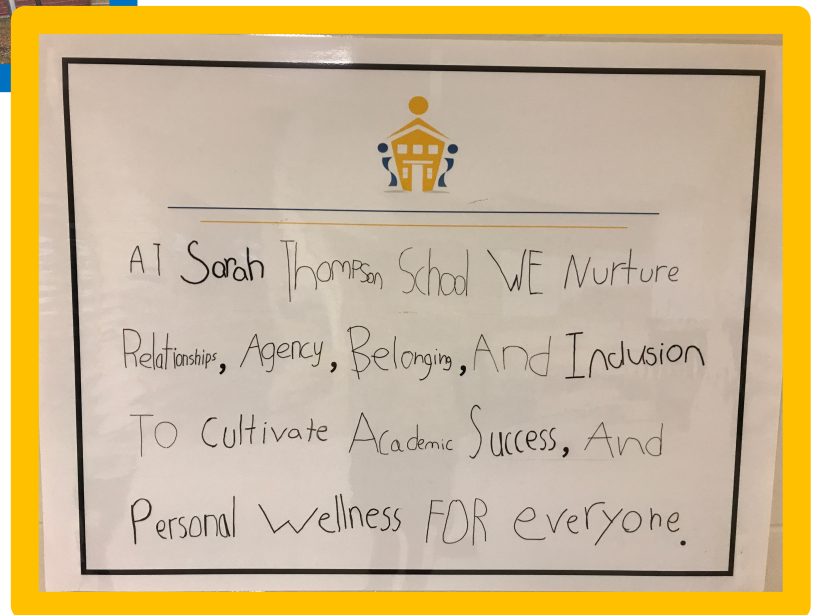 AT Sarah Thompson School WE Nurture
Relationships, Agency, Belonging, And Inclusion
To Cultivate Academic Success, And
Personal Wellness FOR everyone.